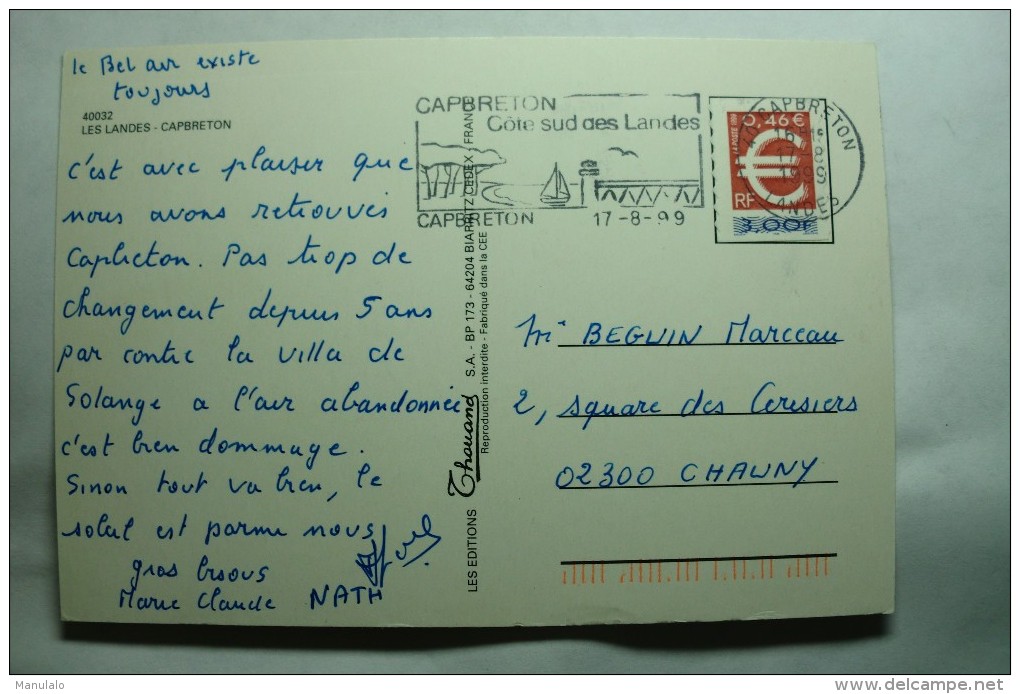 le Bel air existe
toujours
40032
LES LANDES - CAPBRETON
c'est avec plaisir que
nous avons retrouvés
Capbreton. Pas trop de
changement depuis 5 ans
par contre la villa de
Solange a l'air abandonnée
c'est bien dommage.
Sinon tout va bien, le
soleil est parmi nous
gros bisous
Marie Claude NATH
LES EDITIONS Thouand S.A. - BP 173 - 64204 BIARRITZ CEDEX / FRANCE
Reproduction interdite - Fabriqué dans la CEE
CAPBRETON
Côte sud des Landes
CAPBRETON 17-8-99
CAPBRETON
17-8
1999
LANDES
LA POSTE 1999
0,46 €
RF
3,00F
BEGUIN Marceau
2, square des Cerisiers
02300 CHAUNY
Manulalo
delcampe.net